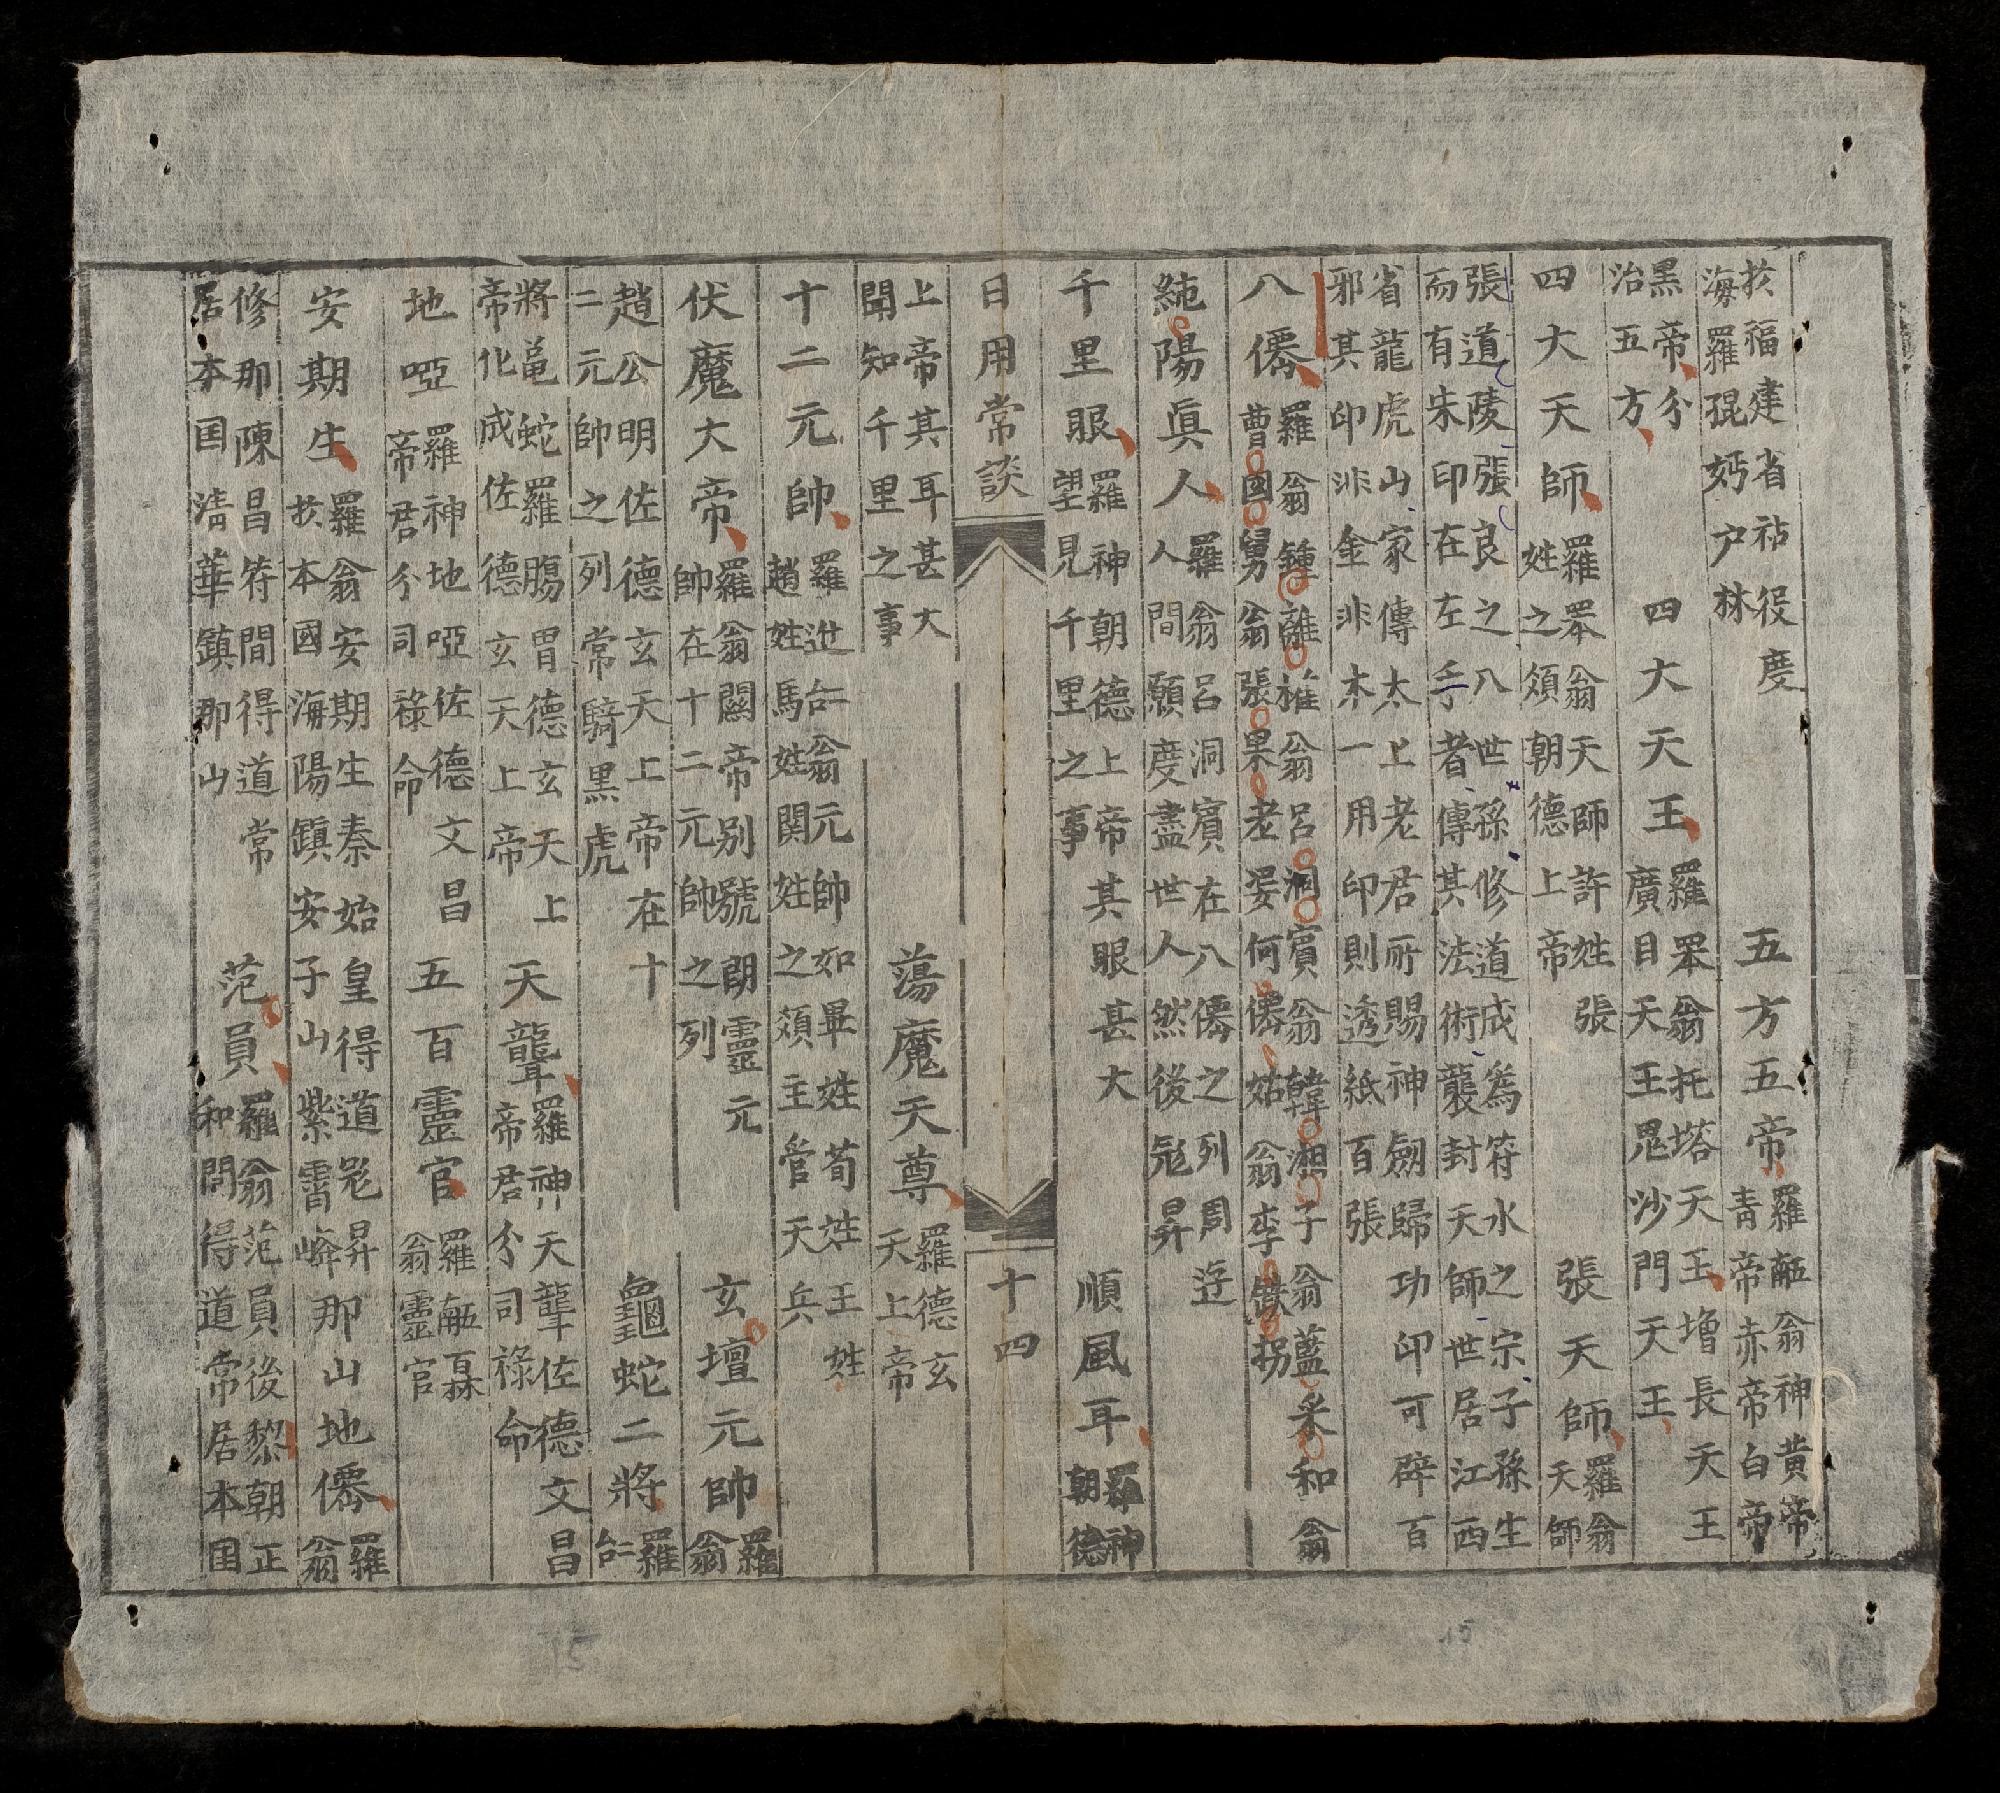 扵福建省祐役度
海羅琨妈户林
五方五帝
羅𠄼翁神黄帝
青帝赤帝白帝
黑帝分
治五方
四大天王
羅罙翁托塔天王增長天王
廣目天王毘沙門天王
四大天師
羅罙翁天師許姓張
姓之類朝德上帝
張天師
羅翁
天師
張道陵張良之八世孫修道成爲符水之宗子孫生
而有朱印在左手者傳其法術襲封天師世居江西
省龍虎山家傳太上老君所賜神劔歸功印可辟百
邪其印非金非木一用印則透紙百張
八僊
羅翁鍾離權翁呂洞賓翁韓湘子翁藍采和翁
曹國舅翁張果老娿何僊姑翁李鐵拐
純陽眞人
羅翁呂洞賓在八僊之列周遊
人間願度盡世人然後飛昇
千里眼
羅神朝德上帝其眼甚大
望見千里之事
順風耳
羅神
朝德
日用常談
十四
上帝其耳甚大
聞知千里之事
蕩魔天尊
羅德玄
天上帝
十二元帥
羅𨑮𠄩翁元帥如畢姓荀姓王姓
趙姓馬姓関姓之類主管天兵
伏魔大帝
羅翁關帝别號朗靈元
帥在十二元帥之列
玄壇元帥
羅
翁
趙公明佐德玄天上帝在十
二元帥之列常騎黑虎
龜蛇二將
羅
𠄩
將黽蛇羅膓胃德玄天上
帝化成佐德玄天上帝
天聾
羅神天聾佐德文昌
帝君分司祿命
地啞
羅神地啞佐德文昌
帝君分司祿命
五百靈官
羅𠄼𤾓
翁靈官
安期生
羅翁安期生秦始皇得道飛昇
扵本國海陽鎮安子山紫霄峰
那山地僊
羅
翁
修那陳昌符間得道常
居本囯清華鎮那山
范員
羅翁范員後黎朝正
和間得道常居本囯